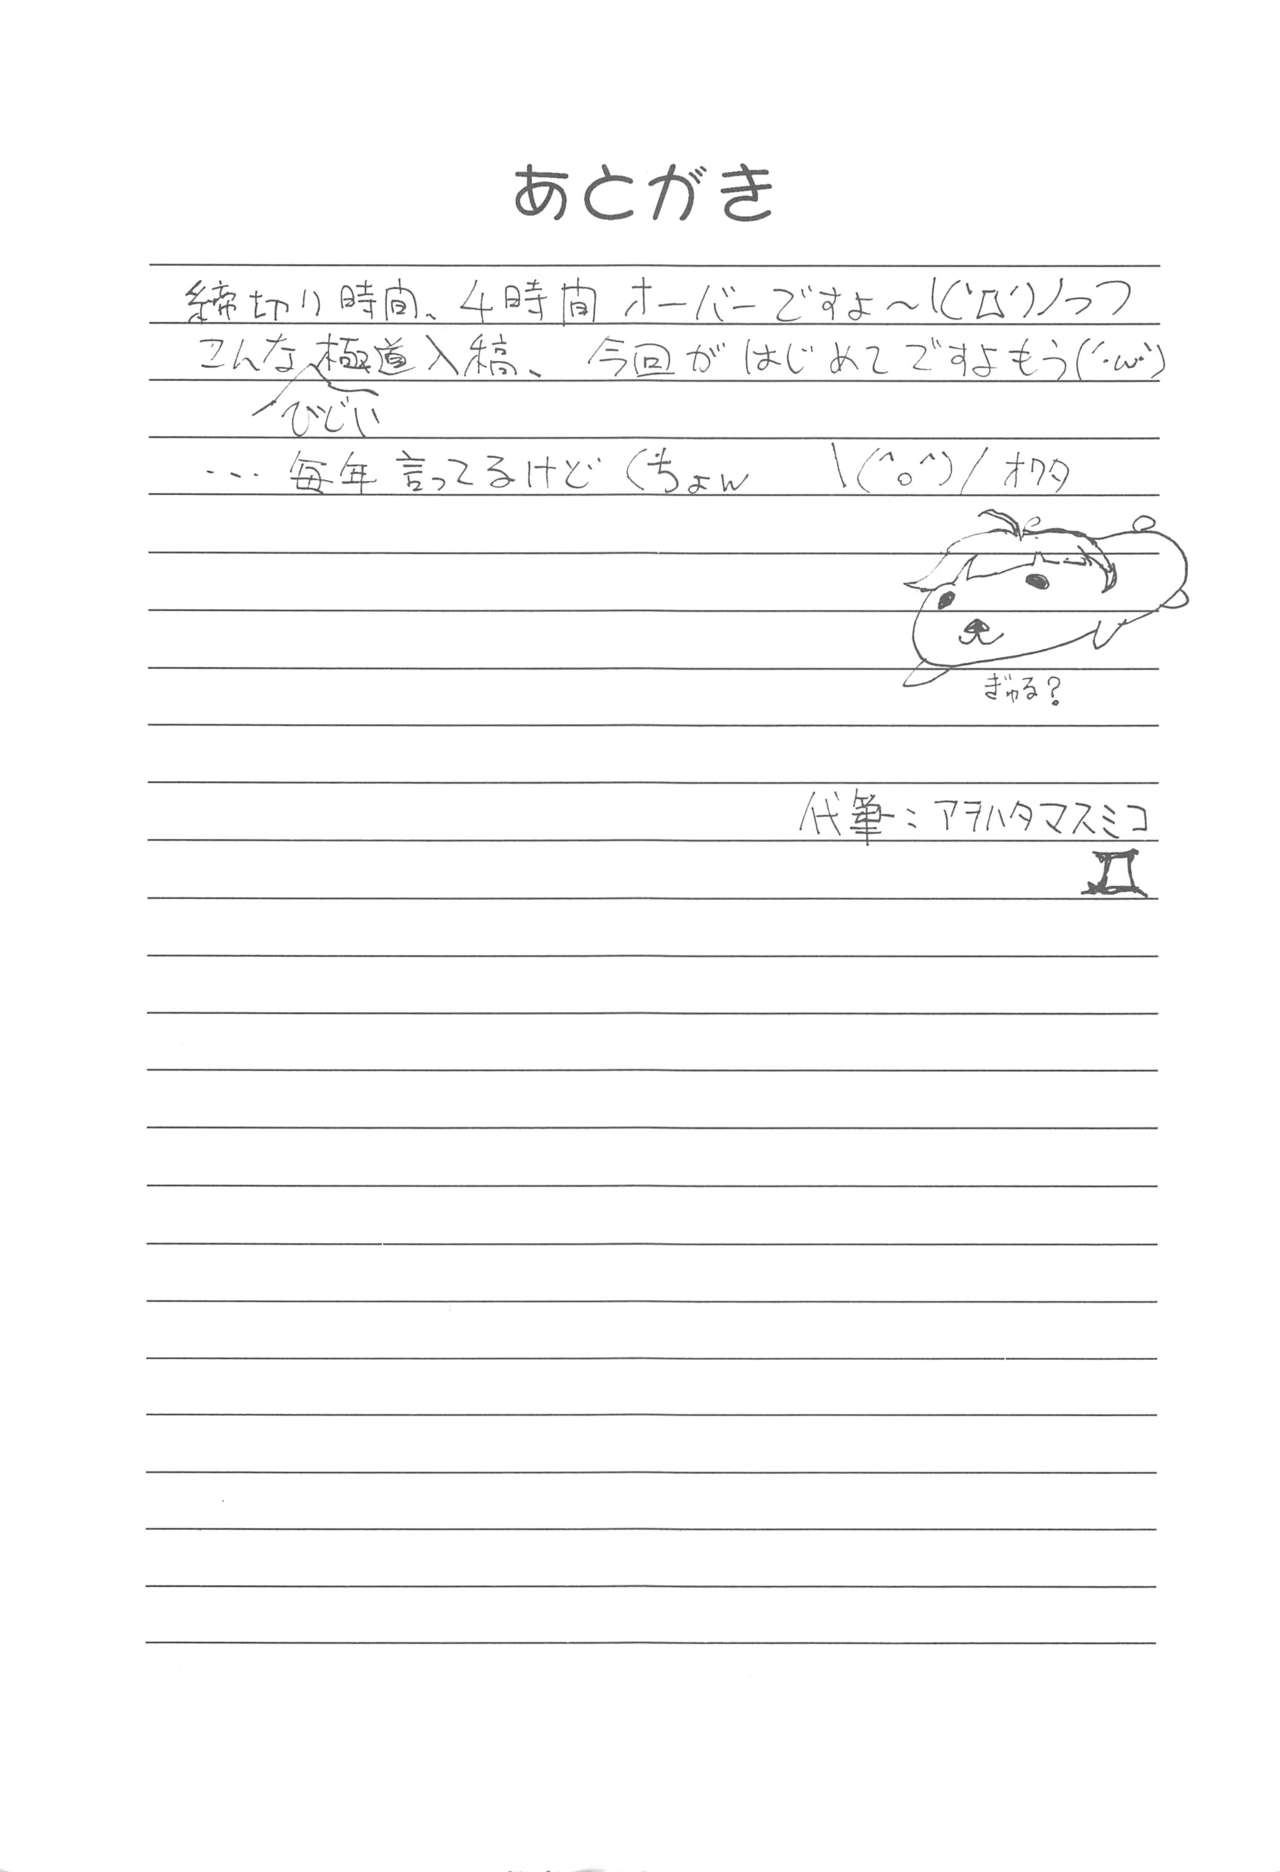 あとがき
締切り時間、4時間オーバーですよ～\(‘Д‘)/っつ
こんな極道入稿、今回がはじめてですよもう(´･ω･`)
ひどい
… 毎年言ってるけど くちょw \(^o^)/ オワタ
ぎゅる?
代筆：アヲハタマスミコ